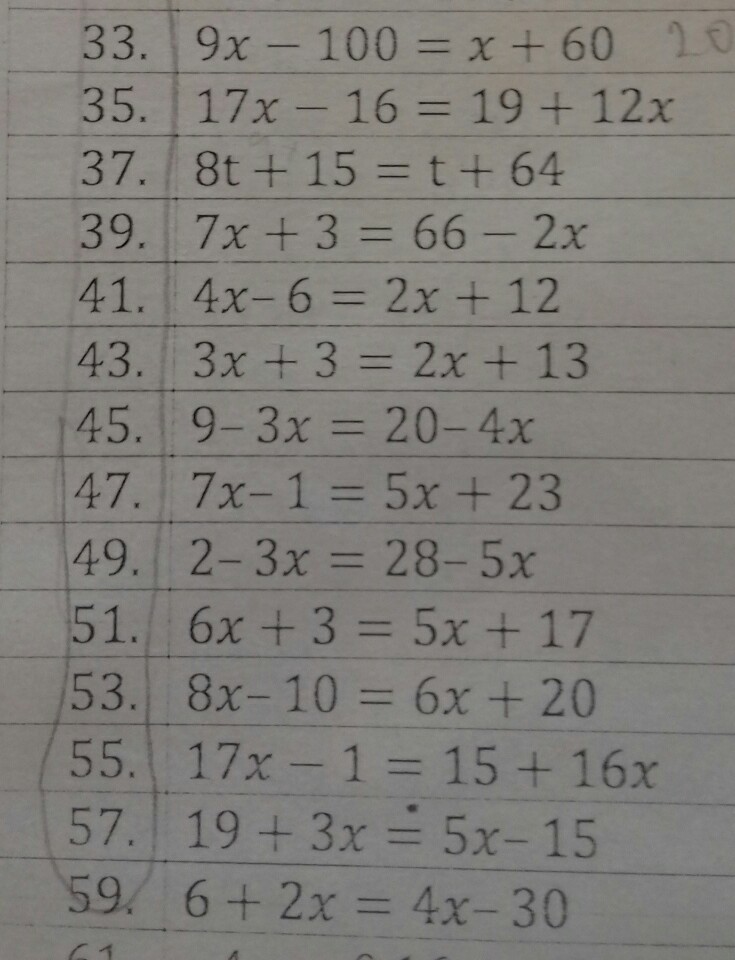 33. 9x – 100 = x + 60 20
35. 17x – 16 = 19 + 12x
37. 8t + 15 = t + 64
39. 7x + 3 = 66 – 2x
41. 4x– 6 = 2x + 12
43. 3x + 3 = 2x + 13
45. 9– 3x = 20– 4x
47. 7x– 1 = 5x + 23
49. 2– 3x = 28– 5x
51. 6x + 3 = 5x + 17
53. 8x– 10 = 6x + 20
55. 17x – 1 = 15 + 16x
57. 19 + 3x = 5x– 15
59. 6 + 2x = 4x– 30